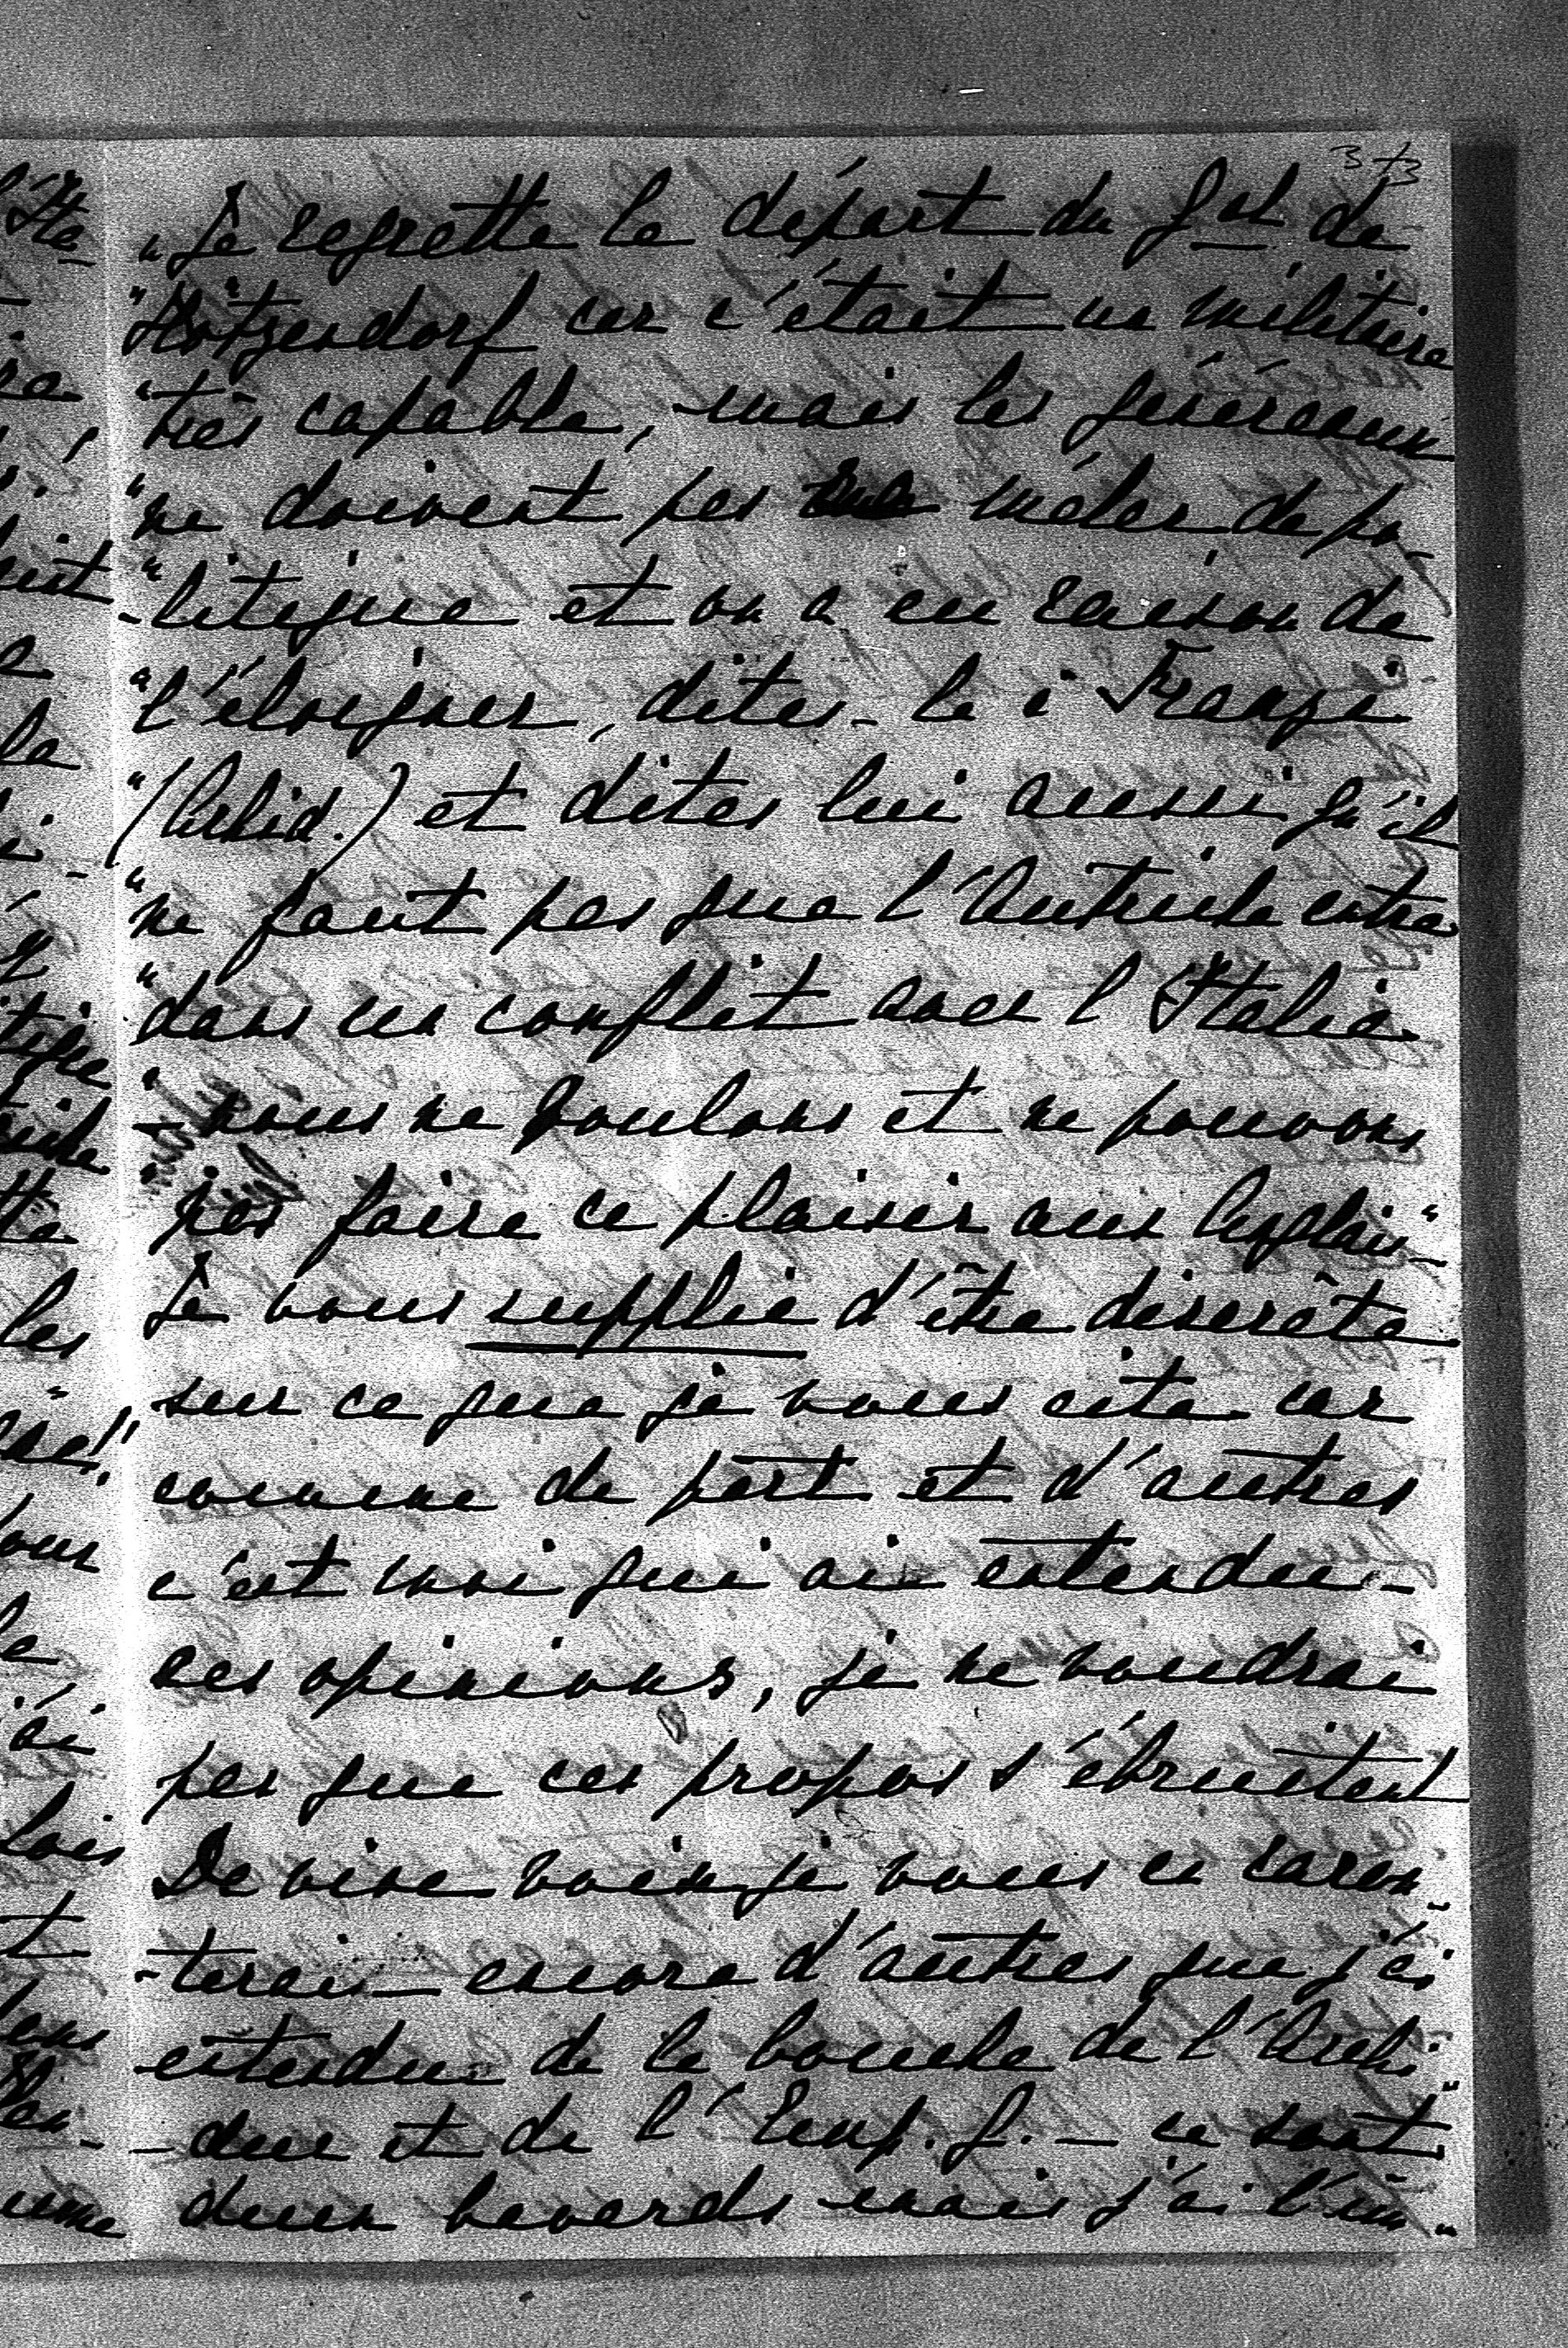 373
"Je regrette le départ du Gal de
"Hötzendorf car c'était un militaire
"très capable, mais les généraux
"ne doivent pas mêler de po-
"-litique et on a eu raison de
"l'éloigner, dites-le à Franzi
"(Archid.) et dites lui aussi qu'il
"ne faut pas que l'Autriche entre
"dans un conflit avec l'Italie
"- nous ne voulons et ne pouvons
"pas faire ce plaisir aux Anglais"-
Je vous supplie d'être discrète
sur ce que je vous cite car
comme de part et d'autres
c'est moi qui ai entendu -
ces opinions, je ne voudrai
pas que ces propos s'ébruitent
De vive voix je vous en racon-
-terai - encore d'autres que j'ai
entendu de la bouche de l'Archi-
-duc et de l'Emp. G. - ce sont
deux bavards mais j'ai l'im-